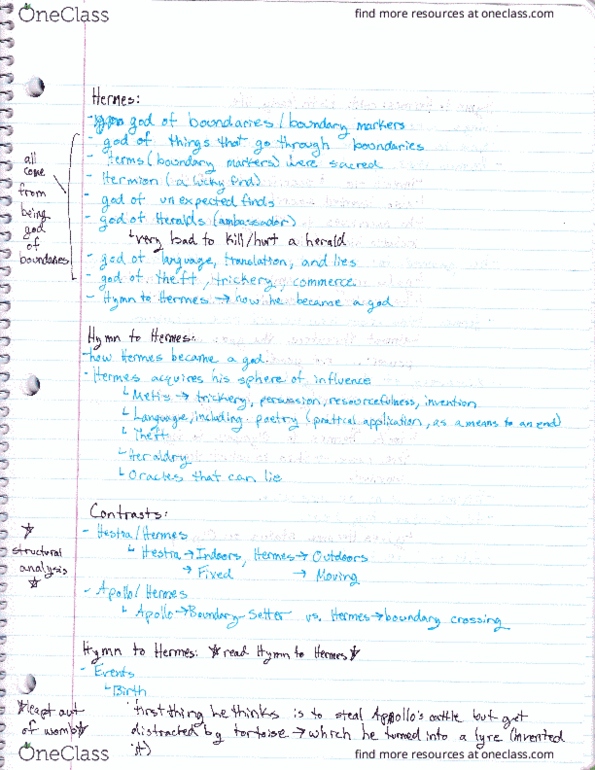 OneClass
find more resources at oneclass.com
Hermes:
- god of boundaries/boundary markers
- god of things that go through boundaries
- Herms (boundary markers) were sacred
- Hermion (a lucky find)
- god of unexpected finds
- god of Heralds (ambassador)
↳very bad to kill/hurt a herald
- god of language, translation, and lies
- god of theft, trickery, commerce
- Hymn to Hermes → how he became a god
all
come
from
being
god
of
boundaries
Hymn to Hermes:
- how Hermes became a god
- Hermes acquires his sphere of influence
↳ Metis → trickery, persuasion, resourcefulness, invention
↳ Language, including poetry (practical application, as a means to an end)
↳ Theft
↳ Heraldry
↳ Oracles that can lie
Contrasts:
☆
structural
analysis
☆
- Hestia/Hermes
↳ Hestia → Indoors, Hermes → Outdoors
→ Fixed → Moving
- Apollo/Hermes
↳ Apollo → Boundary-Setter vs. Hermes → boundary crossing
Hymn to Hermes: ☆read Hymn to Hermes☆
- Events
↳ Birth
☆leapt out
of womb☆
first thing he thinks is to steal Appollo's cattle but get
distracted by tortoise → which he turned into a lyre (invented
it)
OneClass
find more resources at oneclass.com